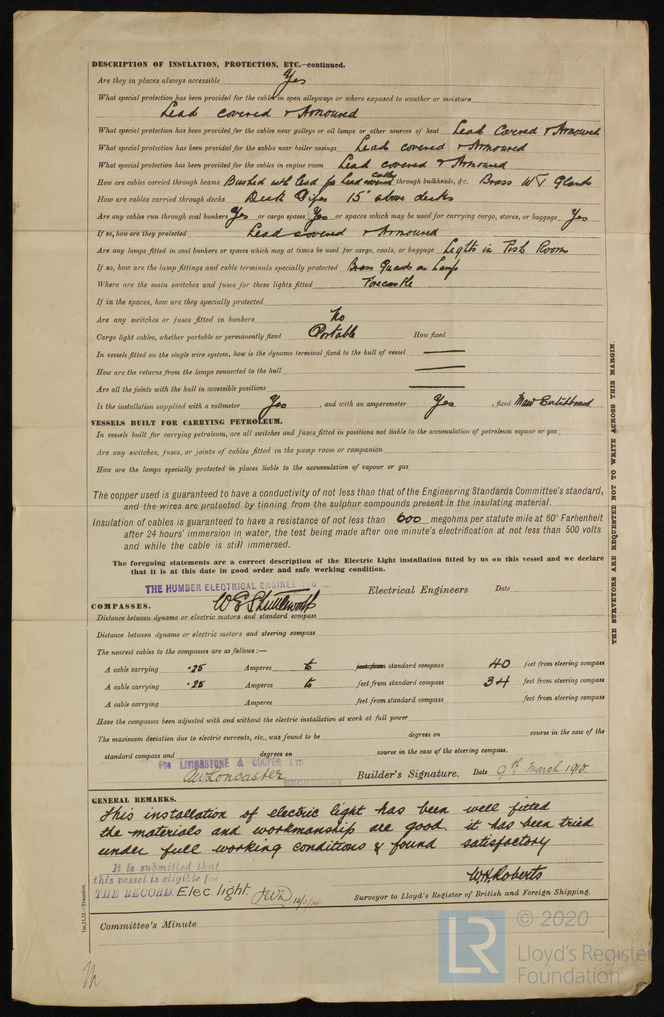 DESCRIPTION OF INSULATION, PROTECTION, ETC.—continued.
Are they in places always accessible Yes
What special protection has been provided for the cables in open alleyways or where exposed to weather or moisture
Lead covered & Armoured
What special protection has been provided for the cables near galleys or oil lamps or other sources of heat Lead Covered & Armoured
What special protection has been provided for the cables near boiler casings Lead covered & Armoured
What special protection has been provided for the cables in engine room Lead covered & Armoured
How are cables carried through beams Bushed with lead for Lead covered cables through bulkheads, &c. Brass WT Glands
How are cables carried through decks Deck Pipes 15" above decks
Are any cables run through coal bunkers Yes or cargo spaces Yes or spaces which may be used for carrying cargo, stores, or baggage Yes
If so, how are they protected Lead covered & Armoured
Are any lamps fitted in coal bunkers or spaces which may at times be used for cargo, coals, or baggage Lights in Fish Room
If so, how are the lamp fittings and cable terminals specially protected Brass Guards on Lamps
Where are the main switches and fuses for these lights fitted Forecastle
If in the spaces, how are they specially protected
Are any switches or fuses fitted in bunkers No
Cargo light cables, whether portable or permanently fixed Portable How fixed
In vessels fitted on the single wire system, how is the dynamo terminal fixed to the hull of vessel
How are the returns from the lamps connected to the hull
Are all the joints with the hull in accessible positions
Is the installation supplied with a voltmeter Yes , and with an amperemeter Yes , fixed Main Switchboard
VESSELS BUILT FOR CARRYING PETROLEUM.
In vessels built for carrying petroleum, are all switches and fuses fitted in positions not liable to the accumulation of petroleum vapour or gas
Are any switches, fuses, or joints of cables fitted in the pump room or companion
How are the lamps specially protected in places liable to the accumulation of vapour or gas
The copper used is guaranteed to have a conductivity of not less than that of the Engineering Standards Committee's standard,
and the wires are protected by tinning from the sulphur compounds present in the insulating material.
Insulation of cables is guaranteed to have a resistance of not less than 600 megohms per statute mile at 60° Farhenheit
after 24 hours' immersion in water, the test being made after one minute's electrification at not less than 500 volts
and while the cable is still immersed.
The foregoing statements are a correct description of the Electric Light installation fitted by us on this vessel and we declare
that it is at this date in good order and safe working condition.
THE HUMBER ELECTRICAL
W E Shuttleworth Electrical Engineers Date
COMPASSES.
Distance between dynamo or electric motors and standard compass
Distance between dynamo or electric motors and steering compass
The nearest cables to the compasses are as follows:—
A cable carrying .25 Amperes to feet from standard compass 40 feet from steering compass
A cable carrying .25 Amperes to feet from standard compass 34 feet from steering compass
A cable carrying Amperes feet from standard compass feet from steering compass
Have the compasses been adjusted with and without the electric installation at work at full power
The maximum deviation due to electric currents, etc., was found to be degrees on course in the case of the
standard compass and degrees on course in the case of the steering compass.
FOR LIVINGSTONE & COOPER LTD
Loncaster SECRETARY Builder's Signature. Date 9th March 191
GENERAL REMARKS.
This installation of electric light has been well fitted
the materials and workmanship are good. it has been tried
under full working conditions & found satisfactory
It is submitted that
this vessel is eligible for
THE RECORD. Elec light.
W.H. Roberts
Surveyor to Lloyd's Register of British and Foreign Shipping.
Committee's Minute
THE SURVEYORS ARE REQUESTED NOT TO WRITE ACROSS THIS MARGIN.
1m.11.12—Transfer.
© 2020
LR
Lloyd's Register
Foundation